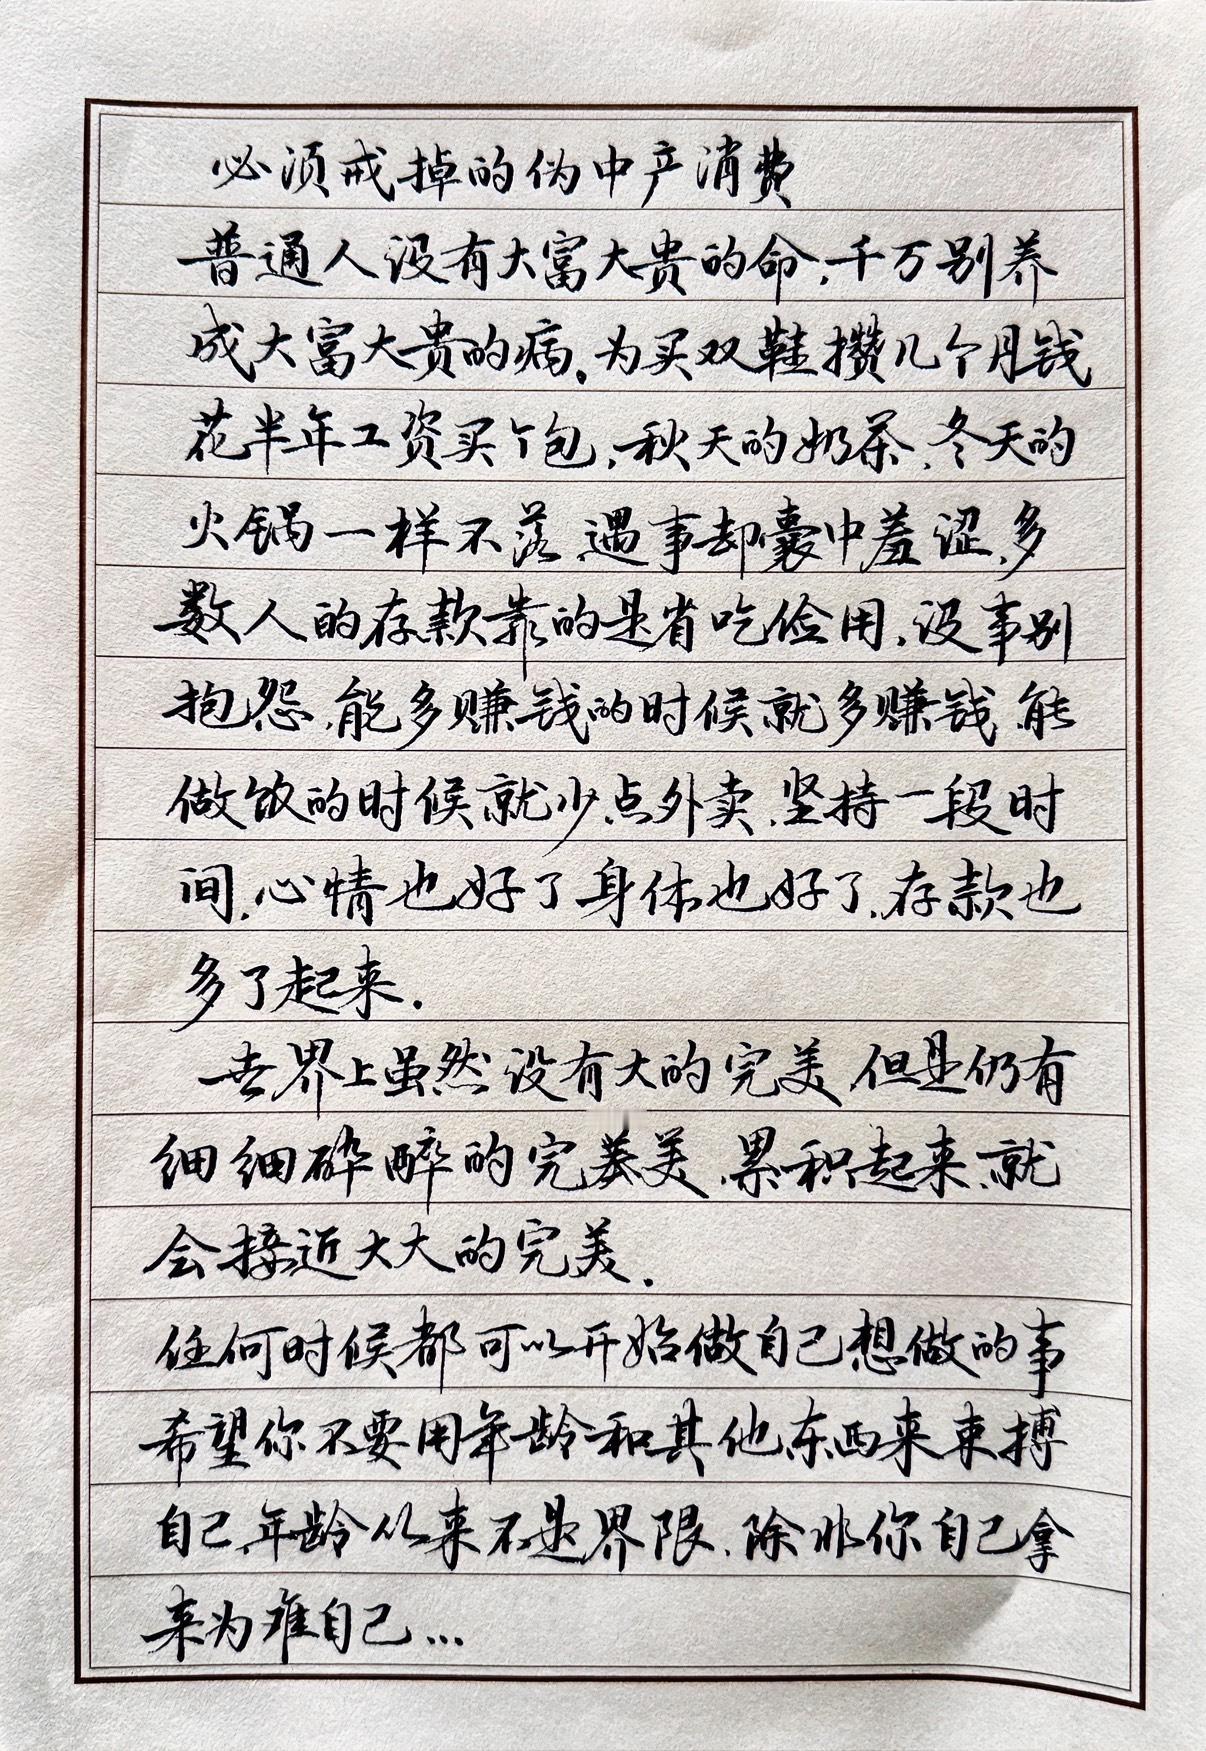 必须戒掉的伪中产消费
普通人没有大富大贵的命，千万别养
成大富大贵的病。为买双鞋攒几个月钱
花半年工资买个包，秋天的奶茶，冬天的
火锅一样不落，遇事却囊中羞涩，多
数人的存款靠的是省吃俭用，没事别
抱怨，能多赚钱的时候就多赚钱，能
做饭的时候就少点外卖，坚持一段时
间，心情也好了身体也好了，存款也
多了起来.
世界上虽然没有大的完美，但是仍有
细细碎醉的完美，累积起来，就
会接近大大的完美.
任何时候都可以开始做自己想做的事
希望你不要用年龄和其他东西来束搏
自己，年龄从来不是界限，除非你自己拿
来为难自己...